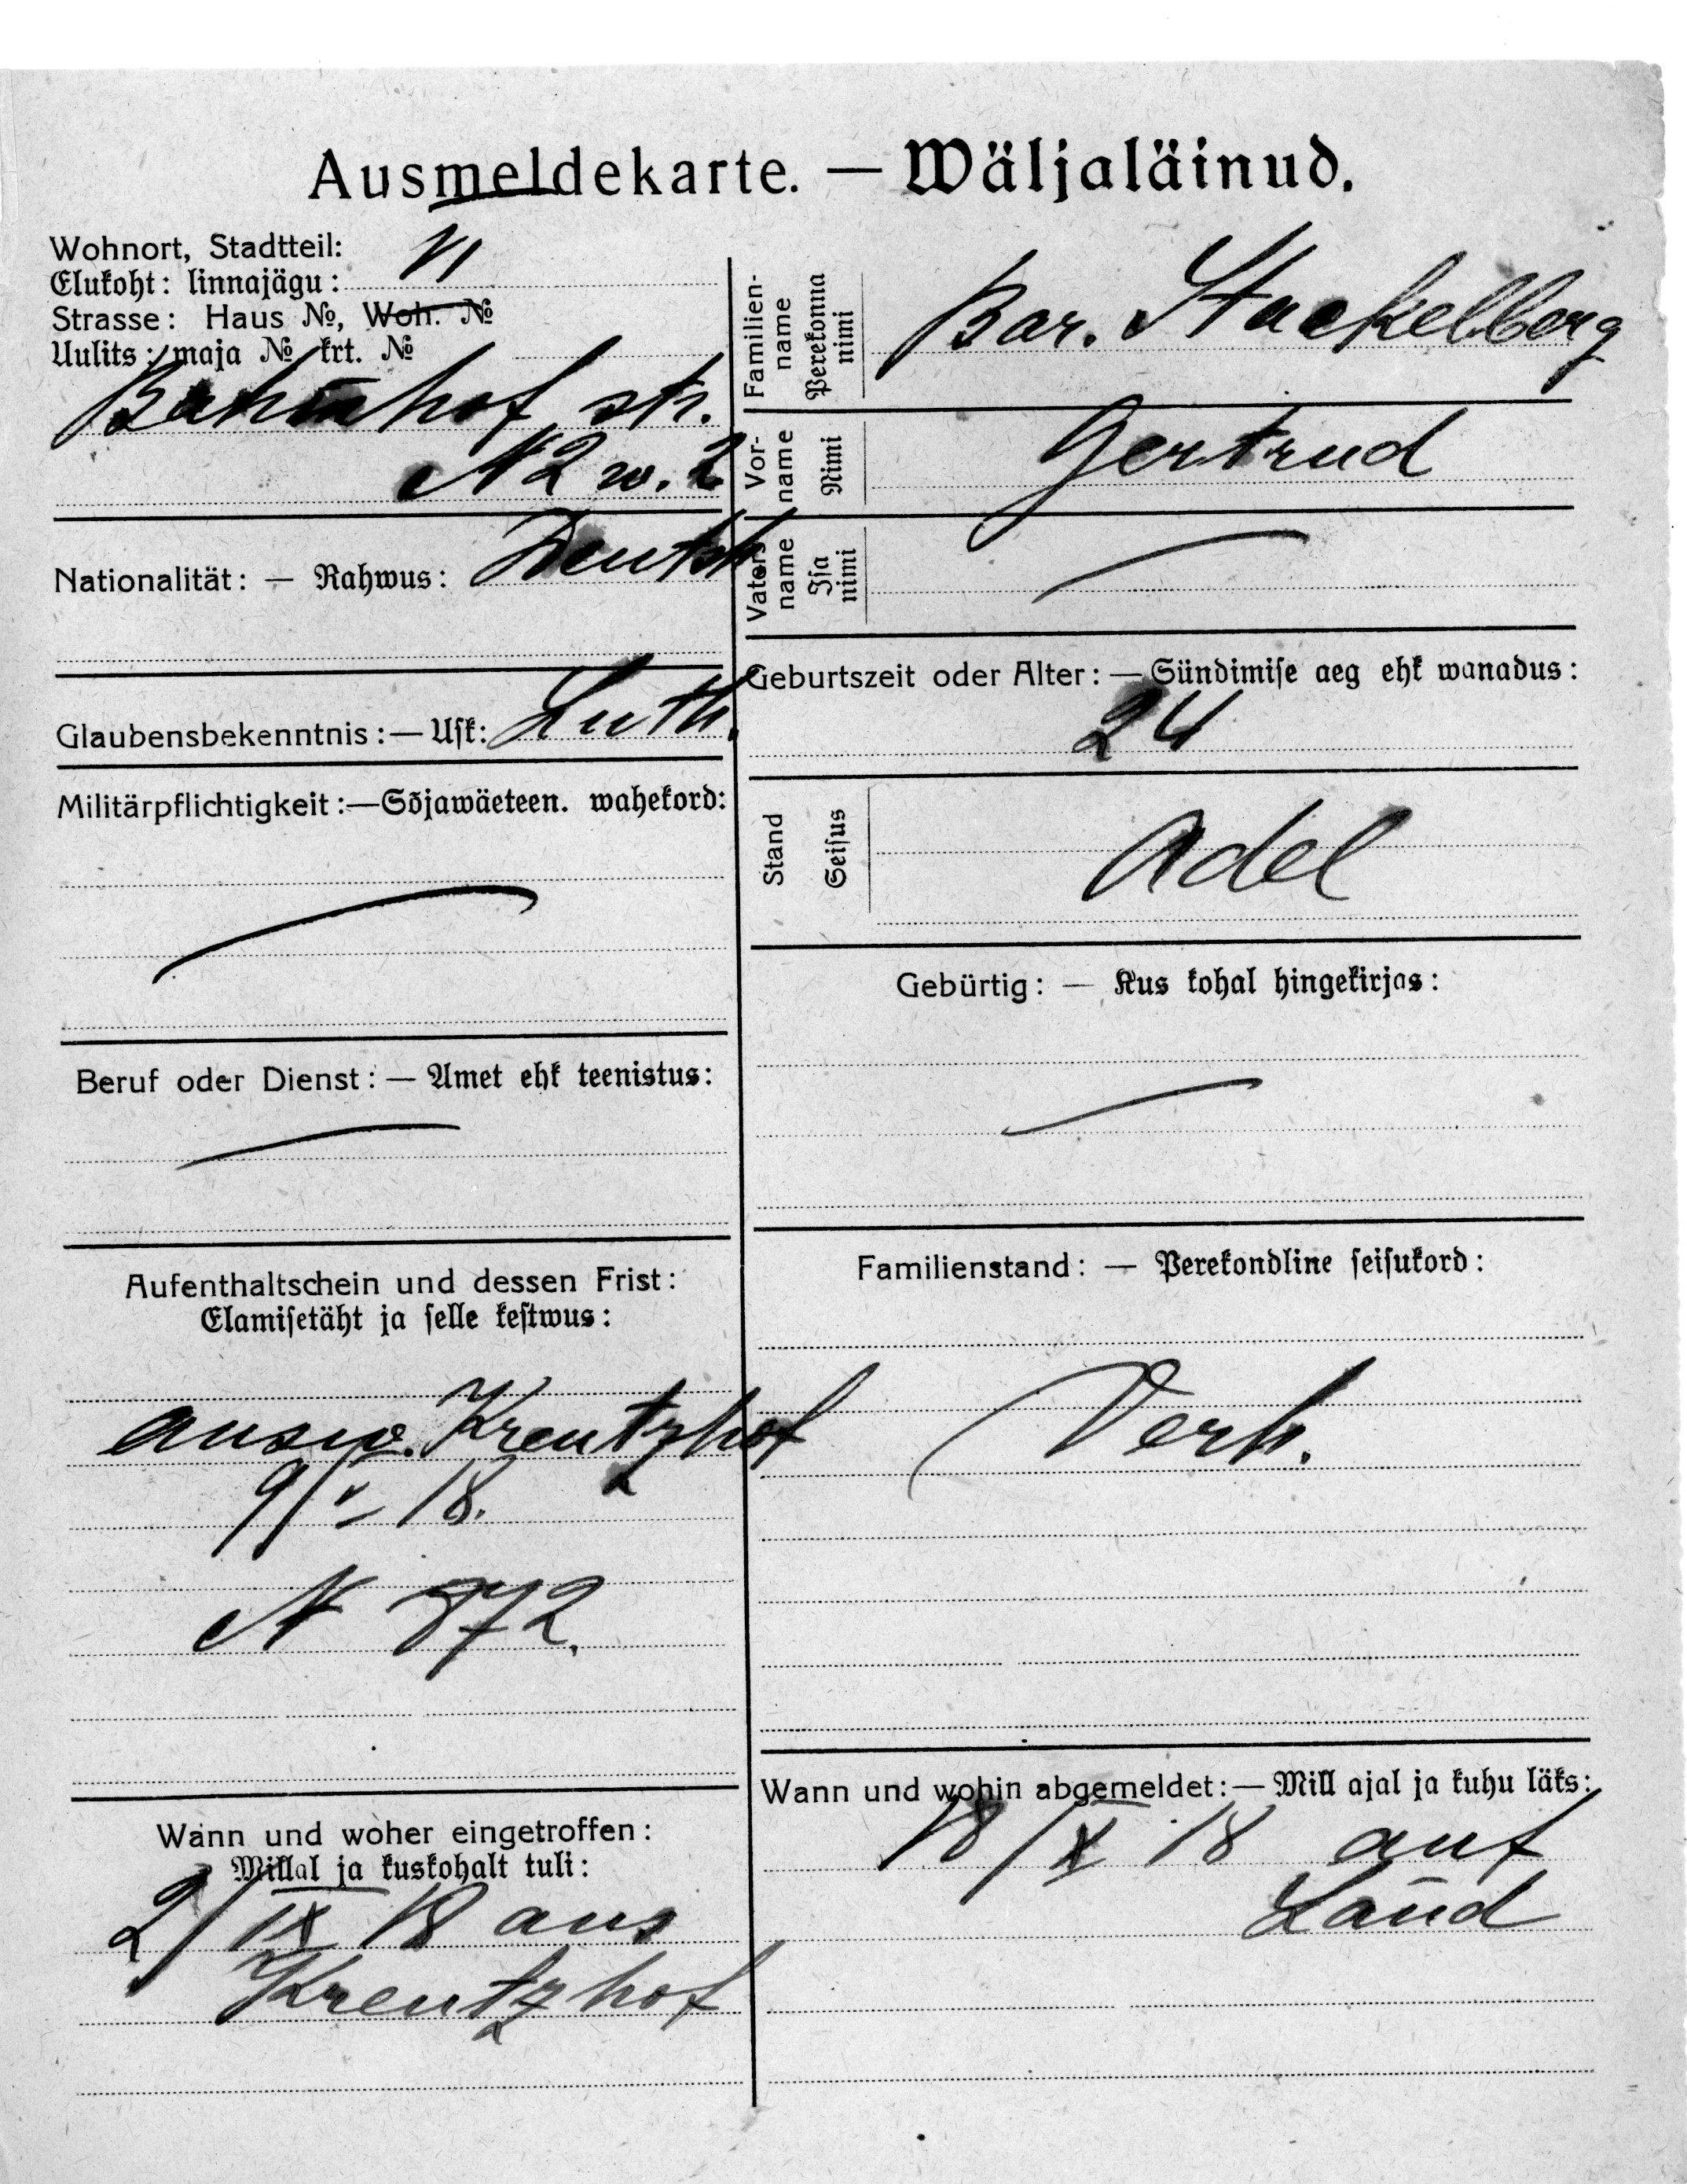 Ausmeldekarte. — Wäljaläinud.
Wohnort, Stadtteil: VI
Elukoht: linnajägu:
Strasse: Haus №, Woh. №
Uulits: maja № krt. №
Bahnhof str.
N 2 w. 2
Nationalität: — Rahwus: Deutsch
Glaubensbekenntnis: — Usk: Luth.
Militärpflichtigkeit: — Sõjawäeteen. wahekord:
Beruf oder Dienst: — Amet ehk teenistus:
Aufenthaltschein und dessen Frist:
Elamisetäht ja selle kestwus:
ausw. Kreutzhof
9/V 18.
N 872.
Wann und woher eingetroffen:
Millal ja kuskohalt tuli:
2/IX 18 aus
Kreutzhof
Familien-
name
Perekonna
nimi
Bar. Stackelberg
Vor-
name
Nimi
Gertrud
Vaters
name
Isa
nimi
Geburtszeit oder Alter: — Sündimise aeg ehk wanadus:
24
Stand
Seisus
Adel
Gebürtig: — Kus kohal hingekirjas:
Familienstand: — Perekondline seisukord:
Verh.
Wann und wohin abgemeldet: — Mill ajal ja kuhu läks:
18/X 18 auf
Land